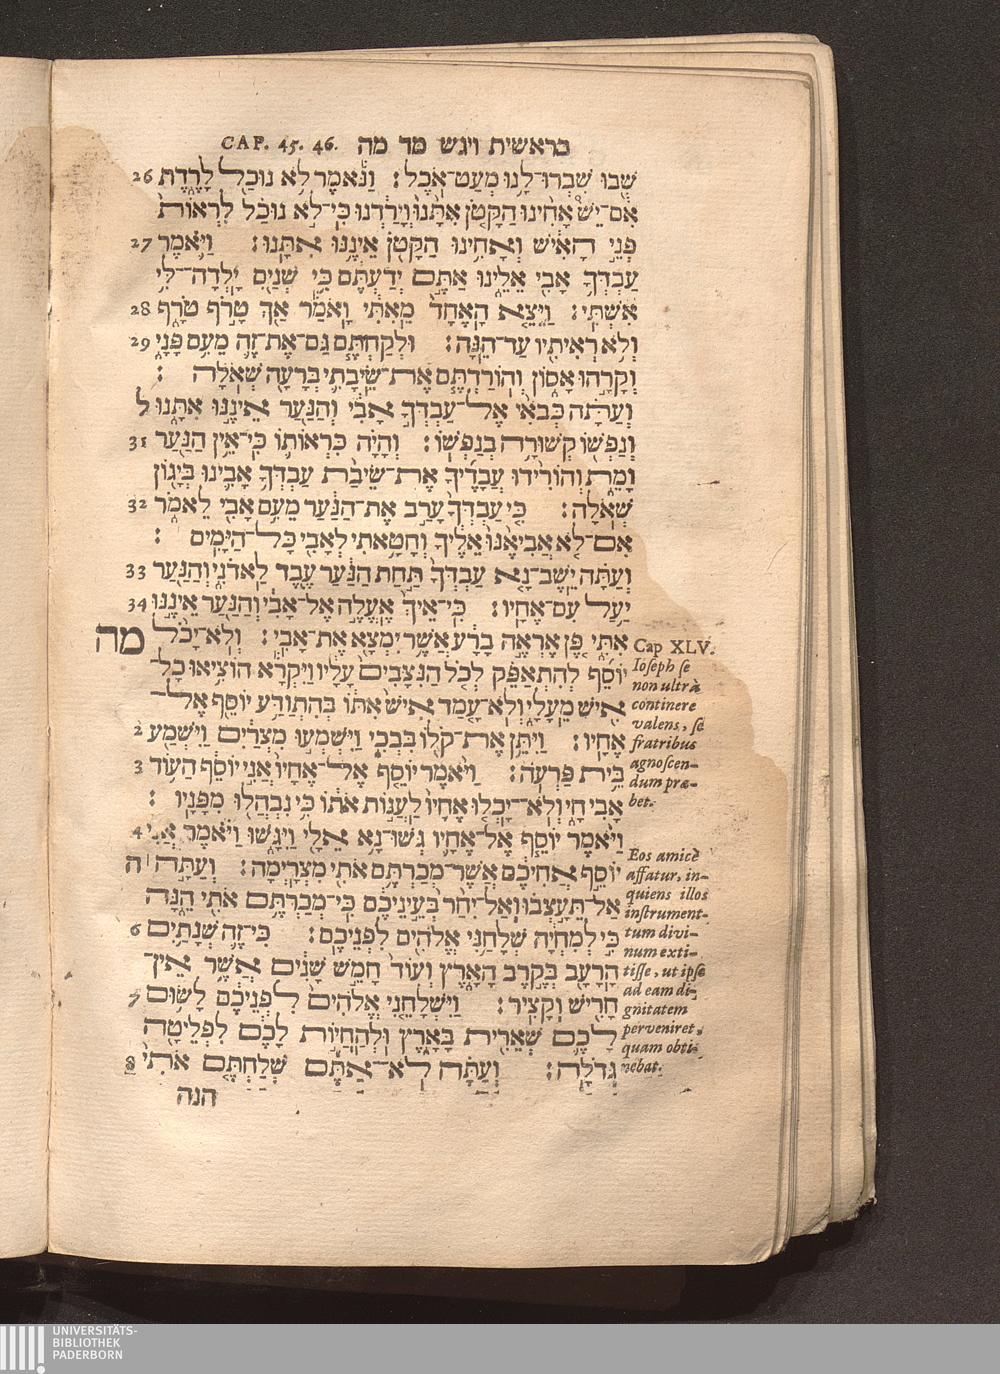 CAP. 45. 46. בראשית ויגש מד מה
שֻׁבוּ שִׁבְרוּ־לָנוּ מְעַט־אֹכֶל׃ וַנֹּאמֶר לֹא נוּכַל לָרֶדֶת 26
אִם־יֵשׁ אָחִינוּ הַקָּטֹן אִתָּנוּ וְיָרַדְנוּ כִּי־לֹא נוּכַל לִרְאוֹת
פְּנֵי הָאִישׁ וְאָחִינוּ הַקָּטֹן אֵינֶנּוּ אִתָּנוּ׃ וַיֹּאמֶר 27
עַבְדְּךָ אָבִי אֵלֵינוּ אַתֶּם יְדַעְתֶּם כִּי שְׁנַיִם יָלְדָה־לִּי
אִשְׁתִּי׃ וַיֵּצֵא הָאֶחָד מֵאִתִּי וָאֹמַר אַךְ טָרֹף טֹרָף 28
וְלֹא רְאִיתִיו עַד־הֵנָּה׃ וּלְקַחְתֶּם גַּם־אֶת־זֶה מֵעִם פָּנַי 29
וְקָרָהוּ אָסוֹן וְהוֹרַדְתֶּם אֶת־שֵׂיבָתִי בְּרָעָה שְׁאֹלָה׃
וְעַתָּה כְּבֹאִי אֶל־עַבְדְּךָ אָבִי וְהַנַּעַר אֵינֶנּוּ אִתָּנוּ ל
וְנַפְשׁוֹ קְשׁוּרָה בְנַפְשׁוֹ׃ וְהָיָה כִּרְאוֹתוֹ כִּי־אֵין הַנַּעַר 31
וָמֵת וְהוֹרִידוּ עֲבָדֶיךָ אֶת־שֵׂיבַת עַבְדְּךָ אָבִינוּ בְּיָגוֹן
שְׁאֹלָה׃ כִּי עַבְדְּךָ עָרַב אֶת־הַנַּעַר מֵעִם אָבִי לֵאמֹר 32
אִם־לֹא אֲבִיאֶנּוּ אֵלֶיךָ וְחָטָאתִי לְאָבִי כָּל־הַיָּמִים׃
וְעַתָּה יֵשֶׁב־נָא עַבְדְּךָ תַּחַת הַנַּעַר עֶבֶד לַאדֹנִי וְהַנַּעַר 33
יַעַל עִם־אֶחָיו׃ כִּי־אֵיךְ אֶעֱלֶה אֶל־אָבִי וְהַנַּעַר אֵינֶנּוּ 34
אִתִּי פֶּן אֶרְאֶה בָרָע אֲשֶׁר יִמְצָא אֶת־אָבִי׃ וְלֹא־יָכֹל מה
יוֹסֵף לְהִתְאַפֵּק לְכֹל הַנִּצָּבִים עָלָיו וַיִּקְרָא הוֹצִיאוּ כָל־
אִישׁ מֵעָלָי וְלֹא־עָמַד אִישׁ אִתּוֹ בְּהִתְוַדַּע יוֹסֵף אֶל־
אֶחָיו׃ וַיִּתֵּן אֶת־קֹלוֹ בִּבְכִי וַיִּשְׁמְעוּ מִצְרַיִם וַיִּשְׁמַע 2
בֵּית פַּרְעֹה׃ וַיֹּאמֶר יוֹסֵף אֶל־אֶחָיו אֲנִי יוֹסֵף הַעוֹד 3
אָבִי חָי וְלֹא־יָכְלוּ אֶחָיו לַעֲנוֹת אֹתוֹ כִּי נִבְהֲלוּ מִפָּנָיו׃
וַיֹּאמֶר יוֹסֵף אֶל־אֶחָיו גְּשׁוּ־נָא אֵלַי וַיִּגָּשׁוּ וַיֹּאמֶר אֲנִי 4
יוֹסֵף אֲחִיכֶם אֲשֶׁר־מְכַרְתֶּם אֹתִי מִצְרָיְמָה׃ וְעַתָּה ה
אַל־תֵּעָצְבוּ וְאַל־יִחַר בְּעֵינֵיכֶם כִּי־מְכַרְתֶּם אֹתִי הֵנָּה
כִּי לְמִחְיָה שְׁלָחַנִי אֱלֹהִים לִפְנֵיכֶם׃ כִּי־זֶה שְׁנָתַיִם 6
הָרָעָב בְּקֶרֶב הָאָרֶץ וְעוֹד חָמֵשׁ שָׁנִים אֲשֶׁר אֵין־
חָרִישׁ וְקָצִיר׃ וַיִּשְׁלָחֵנִי אֱלֹהִים לִפְנֵיכֶם לָשׂוּם 7
לָכֶם שְׁאֵרִית בָּאָרֶץ וּלְהַחֲיוֹת לָכֶם לִפְלֵיטָה
גְּדֹלָה׃ וְעַתָּה לֹא־אַתֶּם שְׁלַחְתֶּם אֹתִי 8
הנה
Cap XLV.
Ioseph se
non ultrà
continere
valens, se
fratribus
agnoscen-
dum præ-
bet.
Eos amicè
affatur, in-
quiens illos
instrument-
tum divi-
num exti-
tisse, ut ipse
ad eam di-
gnitatem
perveniret,
quam obti-
nebat.
UNIVERSITÄTS-
BIBLIOTHEK
PADERBORN